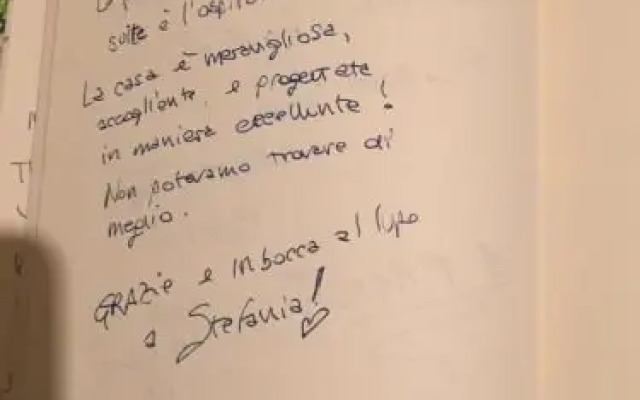 suite è l'ospit
La casa è meravigliosa,
accogliente, e progettata
in maniera eccellente!
Non potevamo trovare di
meglio.
GRAZIE e in bocca al lupo
a Stefania!